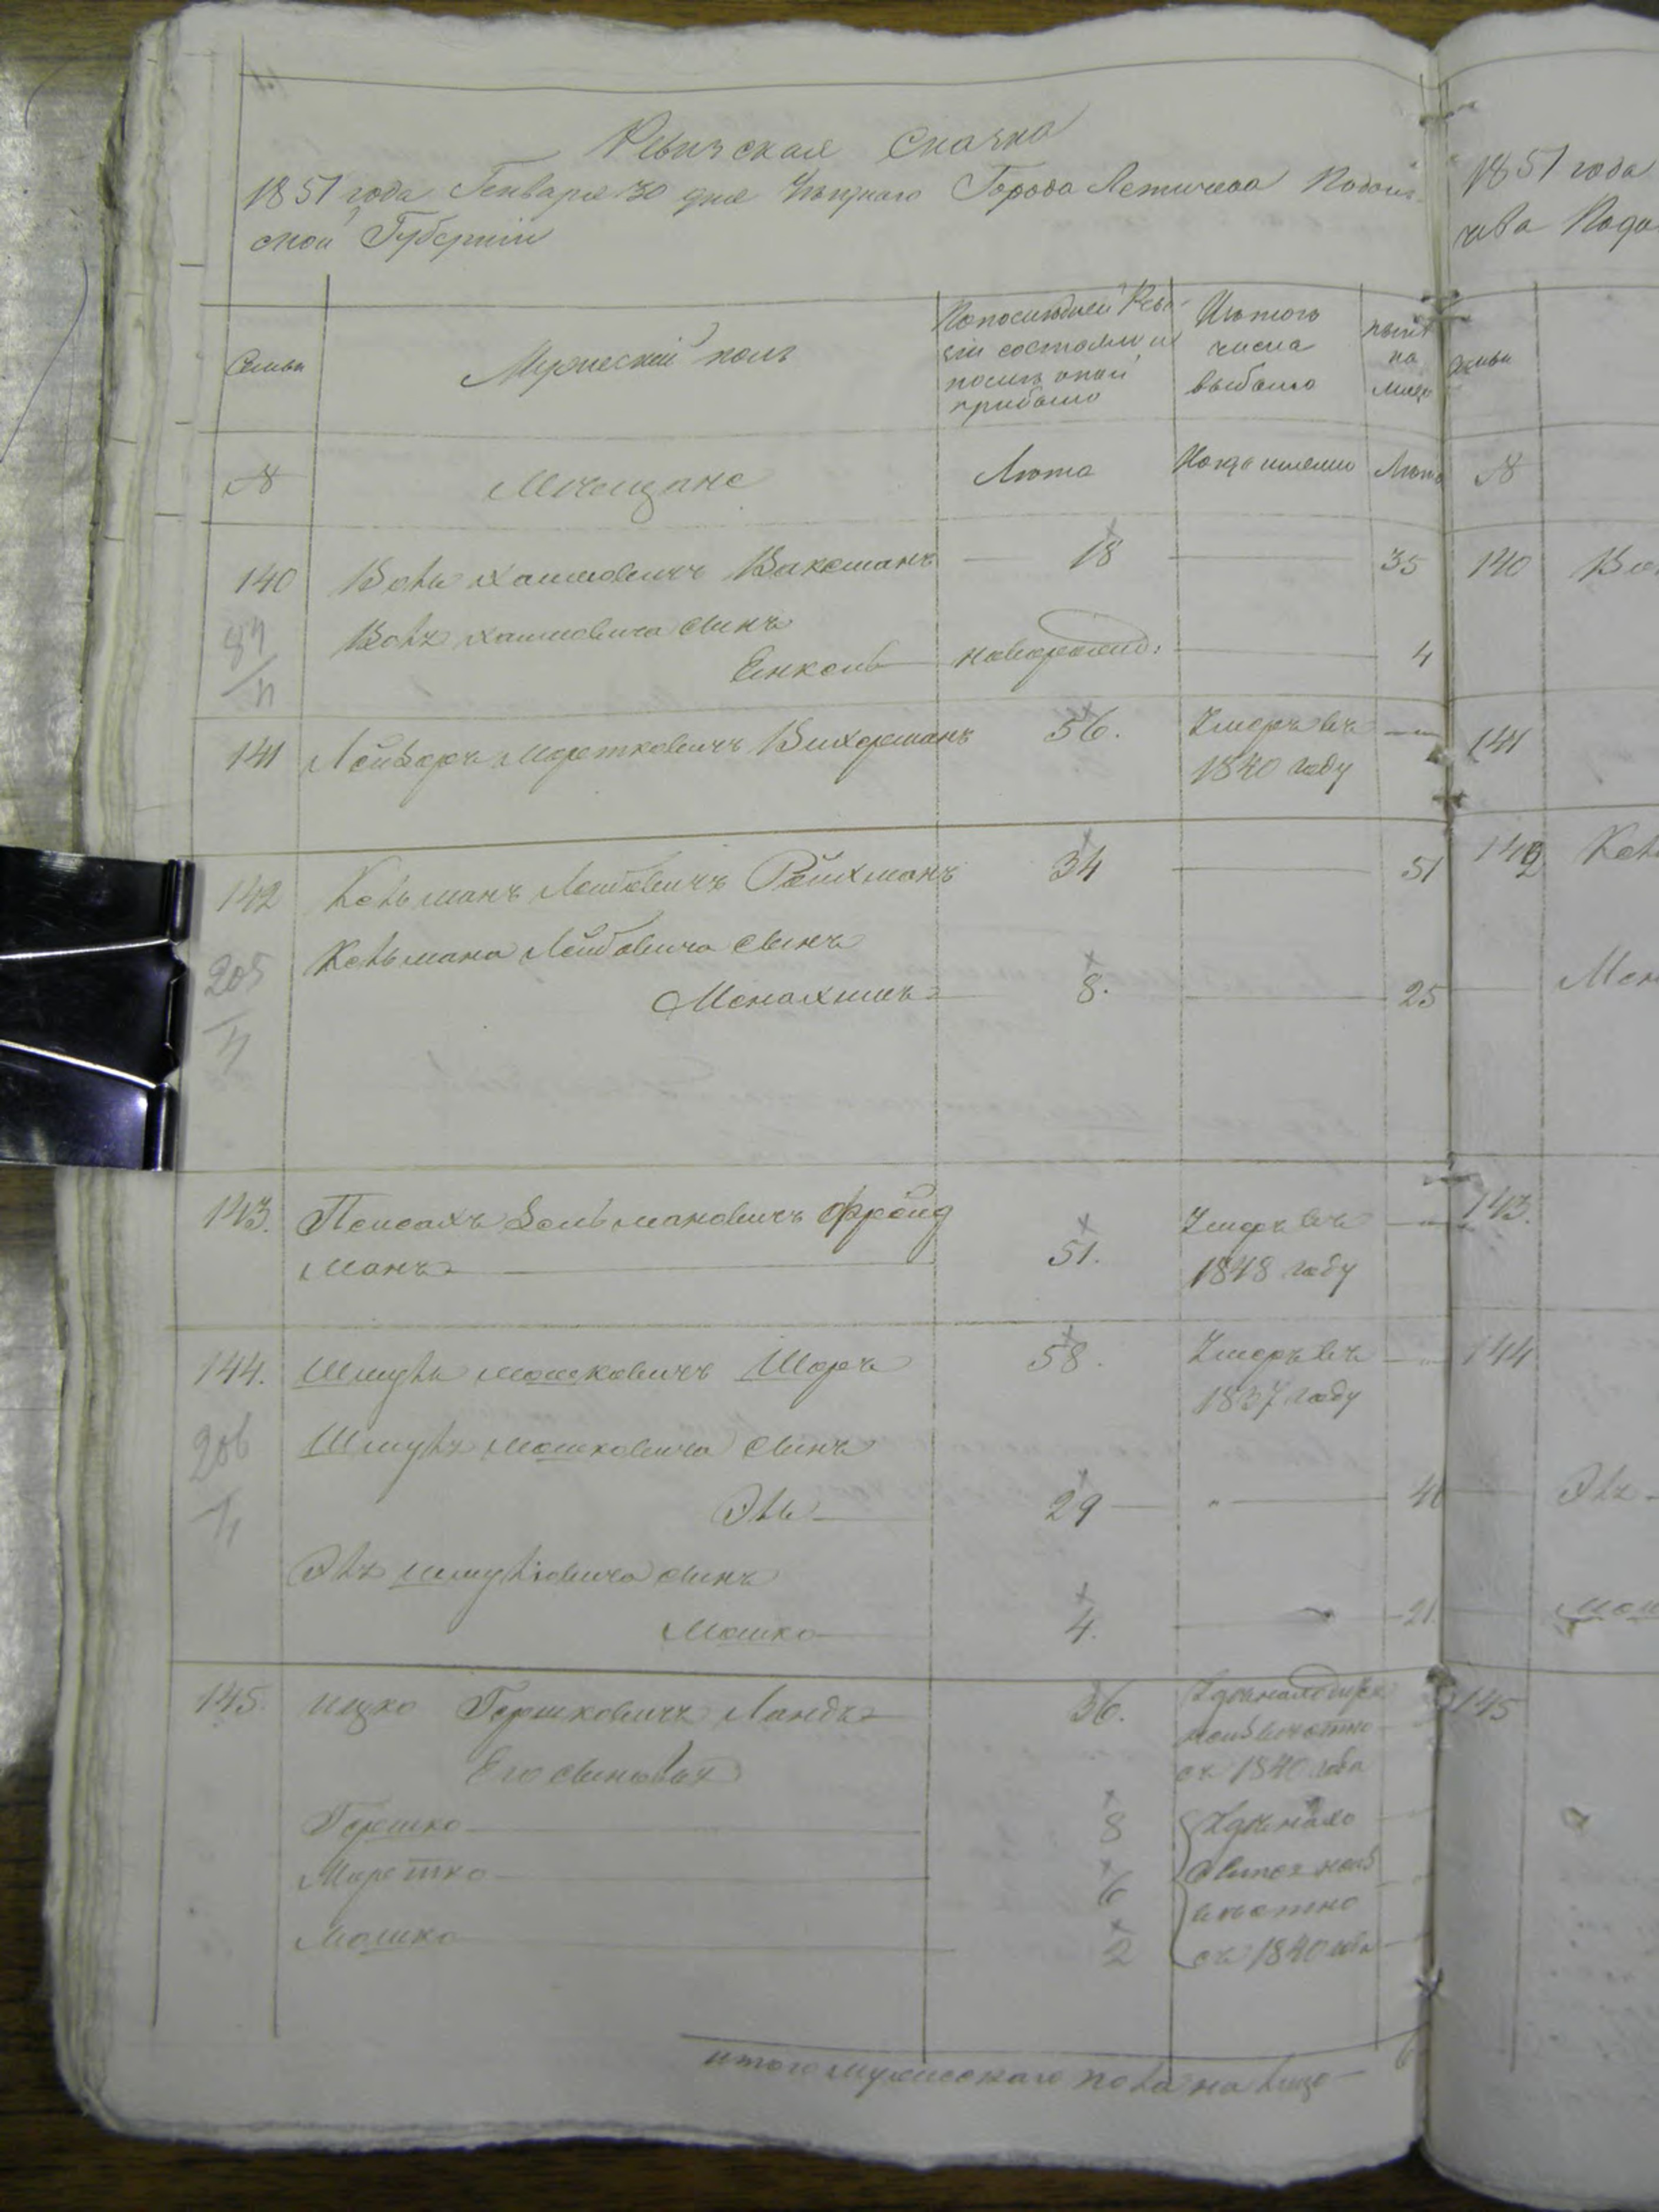 Ревизская Сказка
1851 года Генваря 30 дня Уезднаго Города Летичева Подоль-
ской Губернии
Семьи
Мужеский полъ
По последней Реви-
зии состояло и
после оной
прибыло
Изъ того
числа
выбыло
ныне
на
лицо
№
Мещане
Лета
Когда именно
Лета
140 Волъ Хаимовичъ Ваксманъ 18 35
Хаимовича сынъ
Енкель новорожд: 4
141 Лейзоръ Мортковичъ Вихерманъ 56. Умеръ въ
1840 году
142 Кельманъ Лейбовичъ Ройхманъ 34 51
205
Кельмана Лейбовича сынъ
Монахимъ 8. 25
143. Пейсахъ Зельмановичъ Фройд
манъ 51. Умеръ въ
1848 году
144. Шмуль Мошковичъ Шоръ 58. Умеръ въ
1837 году
206
Шмуля Мошковича сынъ
Эль 29
Эля Шмулiовича сынъ
Мошко 4. 21
145. Ицко Гершковичъ Ландъ 36.
съ 1840 года
Его сыновья
Гершко 8
Мортко 6
Мошко 2 съ 1840 года
итого мужескаго пола на лицо
1851 года
чева Подо
семьи
№
140
141
142
143.
144
145